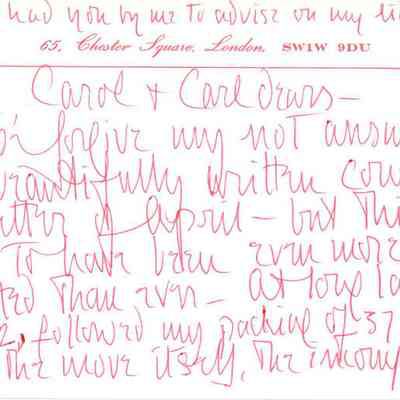 had you by me to advise on my
65, Chester Square, London, SW1W 9DU
Carol + Carl dears –
forgive my not answ
beautifully written
of April – but this
to have been even more
than ever – at long la
followed my packing of 37
the move itself, the